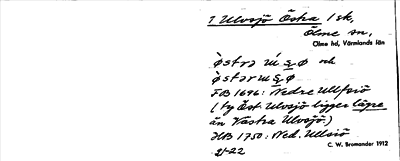 1 Ulvsjö Östra 1 sk,
Ölme sn,
Ölme hd, Värmlands län
och
JB 1696: Nedre Ullfsiö
(ty Öst. Ulvsjö ligger lägre
än Västra Ulvsjö.)
JB 1750: Ned. Ullsiö
C. W. Bromander 1912